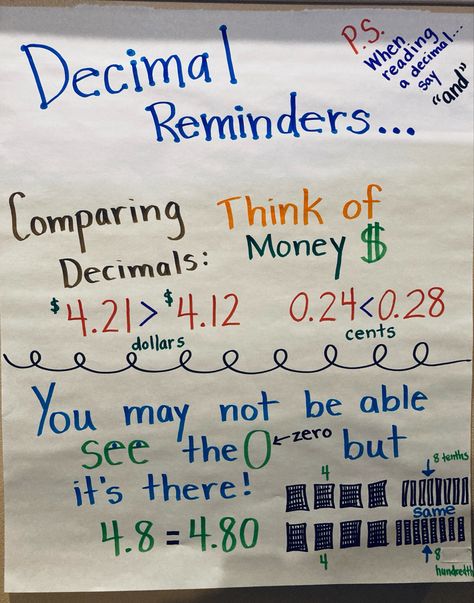 P.S.
When
reading
a decimal...
say
"and"
Decimal
Reminders...
Comparing
Decimals:
Think of
Money $
$4.21 > $4.12
dollars
0.24 < 0.28
cents
You may not be able
see the 0 ← zero but
it's there!
4.8 = 4.80
4
8 tenths
same
4
8
hundredth